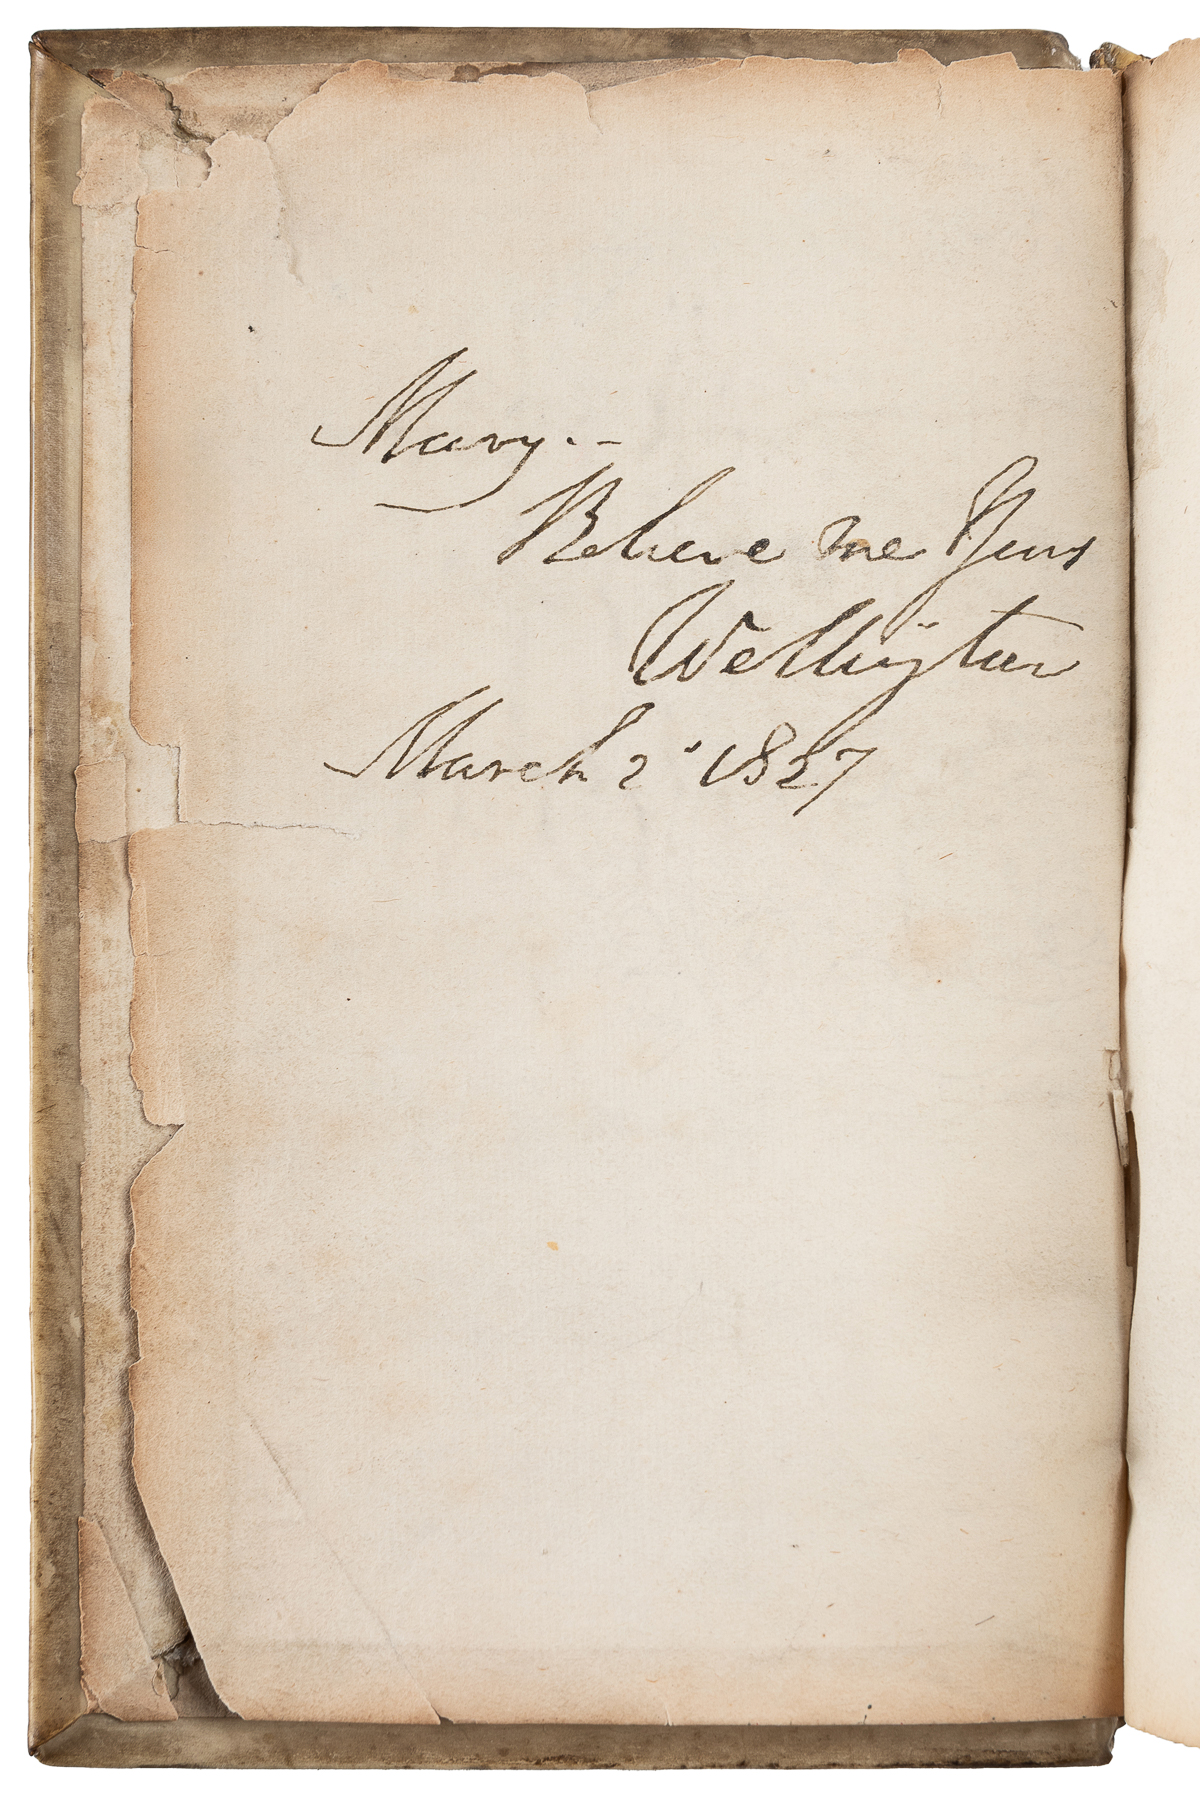 Mary. -
Believe me Yours
Wellington
March 2° 1837